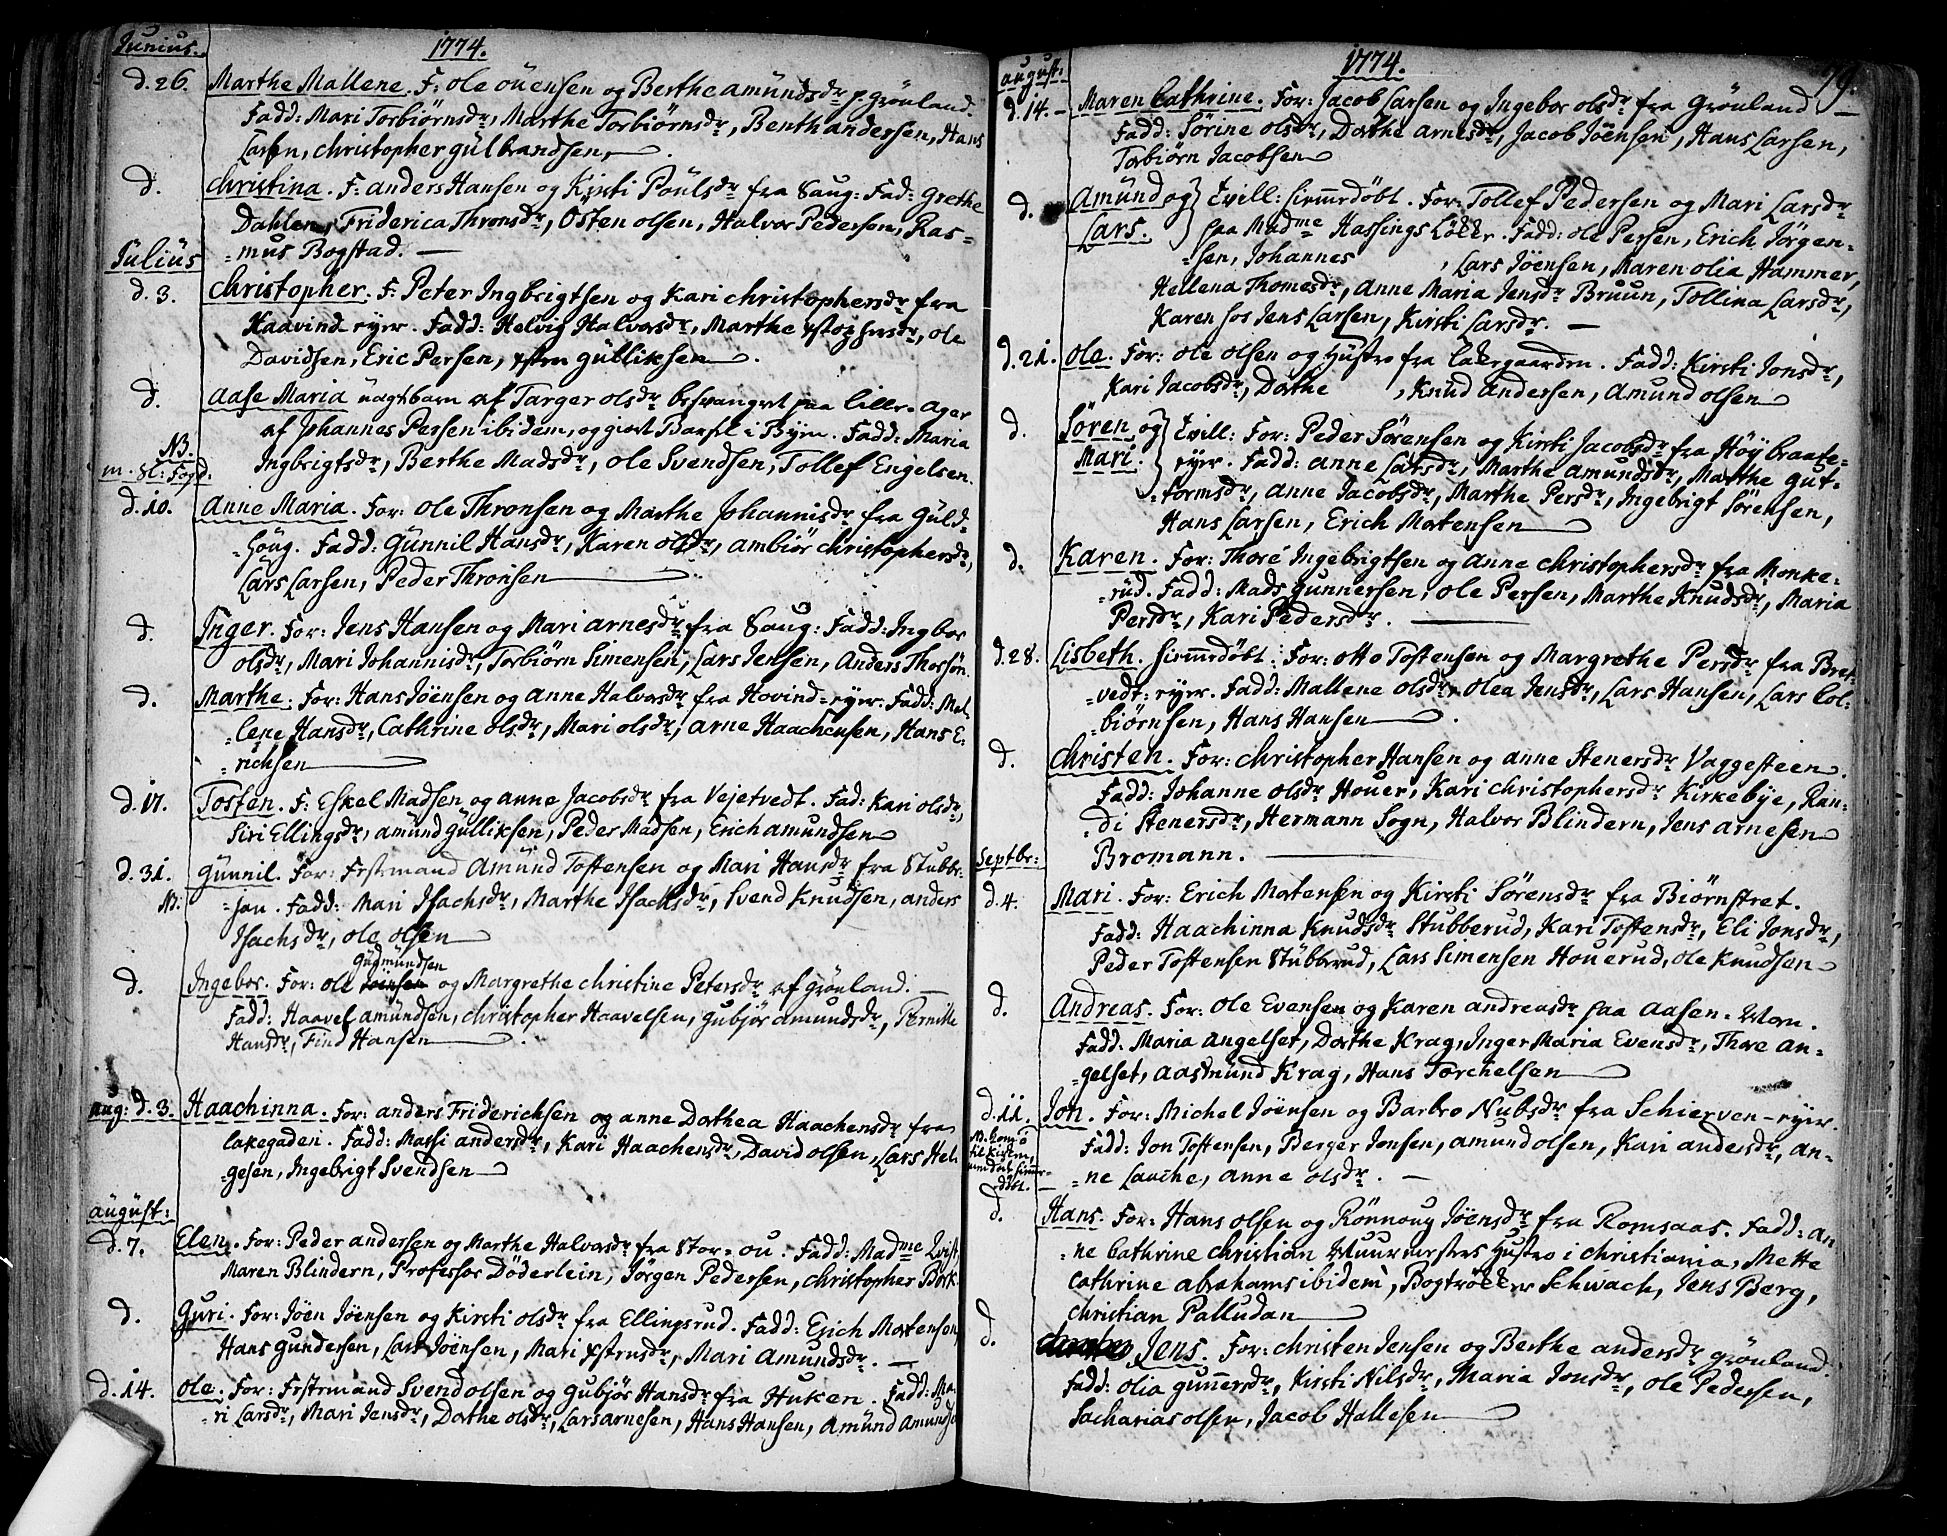 Junius.
1774.
d. 26. Marthe Mallene. F: Ole Ouensen og Berthe Amündsdr p. Grönland.
Fadd: Mari Torbiörnsdr, Marthe Torbiörnsdr, Benth Andersen, Hans
Larsen, Christopher Gülbrandsen,
d. Christina. F: Anders Hansen og Kirsti Poülsdr fra Saug: Fad: Grethe
Dahlen, Friderica Thronsdr, Osten Olsen, Halvor Pedersen, Ras-
-mus Bogstad. —
Julius
d. 3. Christopher. F. Peter Ingbrigtsen og Kari Christophersdr fra
Haavind eyer. Fadd: Helvig Halvorsdr, Marthe Xstophersdr, Ole
Davidsen, Eric Persen, Xsten Gülliksen.
d. Aase Maria üagtbarn af Targer Olsdr besvangert paa Lille-Ager
af Johannes Persen ibidem, og giort Barsel i Byen. Fadd: Maria
NB. Ingbrigtsdr, Berthe Madsdr, Ole Svendsen, Tollef Engelsen.
m. Sl: Fogd:
d. 10. Anne Maria. For: Ole Thronsen og Marthe Johannisdr fra Güld-
-höug. Fadd: Günnil Hansdr, Karen Olsdr, Ambiör Christophersdr,
Lars Larsen, Peder Thronsen
d. Inger. For: Jens Hansen og Mari Arnesdr fra Saug: Fadd: Ingbor
Olsdr, Mari Johannisdr, Torbiörn Simensen, Lars Jensen, Anders Thosön.
d. Marthe: For: Hans Jöensen og Anne Halvorsdr fra Hovind-eyer. Fadd: Mal-
-lene Hansdr, Cathrine Olsdr, Mari Olsdr, Arne Haachensen, Hans E-
-richsen
d. 17. Tosten. F: Eskel Madsen og Anne Jacobsdr fra Vejetvedt. Fad: Kari Olsdr,
Siri Ellingsdr, Amünd Gülliksen, Peder Madsen, Erich Amundsen
d. 31. Günnil. For: Festemand Amünd Tostensen og Mari Hansdr fra Stubbe-
N. -jan. Fadd: Mari Isachsdr, Marthe Isachsdr, Svend Knudsen, Anders
Isachsdr, Ole Olsen
Gudmundsen
d. Ingebor. For: Ole Jöensen og Margrethe Christine Petersdr af Grönland. —
Fadd: Haavel Amündsen, Christopher Haavelsen, Gubjör Amundsdr, Pernille
Hansdr, Find Hansen
Aug: d. 3. Haachinna. For: Anders Friderichsen og Anne Dorthea Haachensdr fra
Lakegaden. Fadd: Massi Andersdr, Kari Haachensdr, David Olsen, Lars Hel-
-gesen, Ingebrigt Svendsen
August:
d. 7. Elen. For: Peder Andersen og Marthe Halvorsdr fra Stor-ou. Fadd: Madme Qvist,
Maren Blindern, Professor Döderlein, Jörgen Pedersen, Christopher Bork
d. Guri. For: Jöen Jöensen og Kirsti Olsdr fra Ellingsrud. Fadd: Erich Mortensen,
Hans Gundersen, Lars Jöensen, Mari Xstensdr, Mari Amundsdr. —
d. 14. Ole. For: Festemand Svend Olsen og Gubjör Hansdr fra Huken. Fadd: Ma-
-ri Larsdr, Mari Jensdr, Dorthe Olsdr, Lars Arnesen, Hans Hansen, Amünd Amundsd
August:
1774.
79.
d. 14. — Maren Cathrine. For: Jacob Larsen og Ingebor Olsdr fra Grönland —
Fadd: Sörine Olsdr, Dorthe Arnesdr, Jacob Jöensen, Hans Larsen,
Torbiörn Jacobsen
d. Amünd og Tvill: hiemedöbt. For: Tollef Pedersen og Mari Larsdr
Lars. paa Madme Hassings Löcke. Fadd: Ole Persen, Erich Jörgen-
-sen, Johannes , Lars Jöensen, Maren Olia Hammer,
Hellena Thomesdr, Anne Maria Jensdr Bruun, Tollina Larsdr,
Karen hos Jens Larsen, Kirsti Larsdr. —
d. 21. Ole. For: Ole Olsen og Hustro fra Lakegaarden. Fadd: Kirsti Jonsdr,
Kari Jacobsdr, Dorthe , Knud Andersen, Amund Olsen
d. Sören og Tvill: For: Peder Sörensen og Kirsti Jacobsdr fra Höybraate-
Mari. eyer. Fadd: Anne Larsdr, Marthe Amundsdr, Marthe Gut-
-tormsdr, Anne Jacobsdr, Marthe Persdr, Ingebrigt Sörensen,
Hans Larsen, Erich Mortensen
d. Karen. For: Thore Ingebrigtsen og Anne Christophersdr fra Monke-
-rüd. Fadd: Mads Gunnersen, Ole Persen, Marthe Knudsdr, Maria
Persdr, Kari Pedersdr.
d. 28. Lisbeth. hiemedöbt. For: Otto Tostensen og Margrethe Persdr fra Bret-
-vedt-eyer. Fadd: Mallene Olsdr, Olea Jensdr, Lars Hansen, Lars Col-
-biörnsen, Hans Hansen.
d. Christen. For: Christopher Hansen og Anne Stenersdr Vaggesteen.
Fadd: Johanne Olsdr Houer, Kari Christophersdr Kirkebye, Ran-
-di Stenersdr, Hermann Sogn, Halvor Blindern, Jens Arnesen
Bromann.
Septbr:
d. 4. Mari. For: Erich Mortensen og Kirsti Sörensdr fra Biörnstret.
Fadd: Haachinna Knudsdr Stubberud, Kari Tostensdr, Eli Jonsdr,
Peder Tostensen Stübberud, Lars Simensen Houerud, Ole Knudsen
d. Andreas. For: Ole Evensen og Karen Andreasdr paa Aasen-Mom.
Fadd: Maria Angelset, Dorthe Krag, Inger Maria Evensdr, Thore An-
-gelset, Aasmund Krag, Hans Torchelsen
d. 11. Jon. For: Michel Jöensen og Barbro Nubsdr fra Schierven-eyer.
Fadd: Jon Tostensen, Berger Jonsen, Amund Olsen, Kari Andersdr, An-
-ne Lauche, Anne Olsdr. —
d. Hans. For: Hans Olsen og Rönnoug Jöensdr fra Romsaas. Fadd: An-
-ne Cathrine Christian Muurmesters Hustro i Christiania, Mette
Cathrine Abrahams ibidem, Bogtrökker Schwach, Jens Berg,
Christian Palludan
d. Jens. For: Christen Jensen og Berthe Andersdr Grönland.
Fadd: Olia Gunersdr, Kirsti Nilsdr, Maria Jonsdr, Ole Pedersen,
Sacharias Olsen, Jacob Hallesen